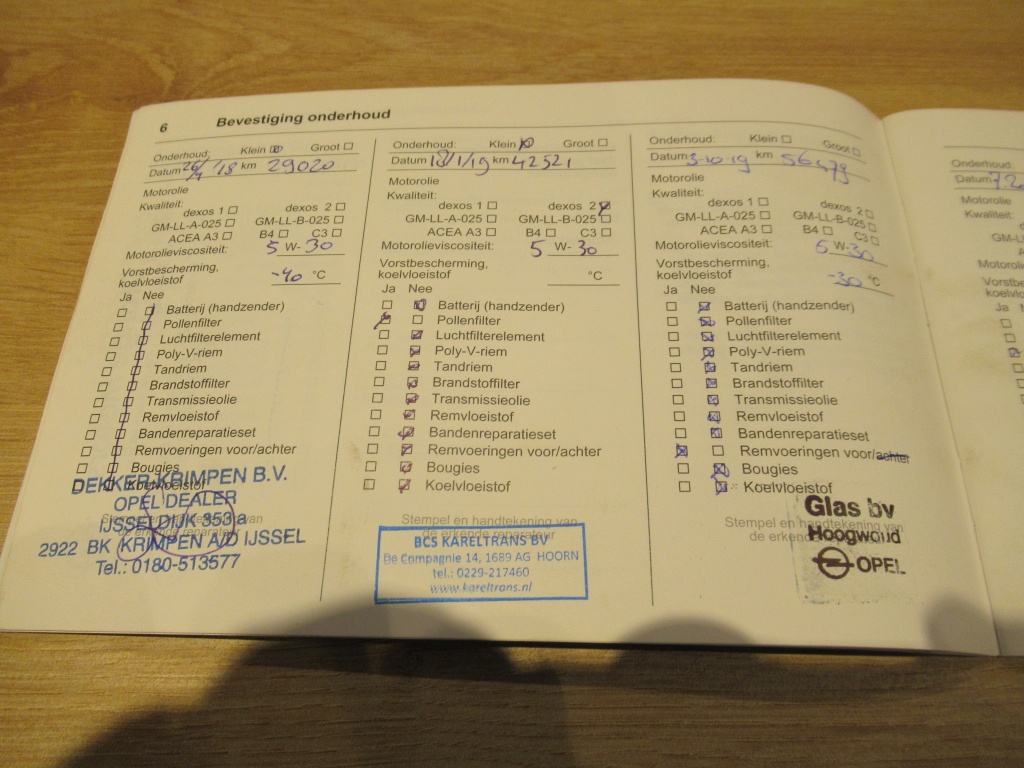 6 Bevestiging onderhoud
Onderhoud: Klein Groot
Datum 26/4/18 km 29020
Motorolie
Kwaliteit:
dexos 1 dexos 2
GM-LL-A-025 GM-LL-B-025
ACEA A3 B4 C3
Motorolieviscositeit: 5 W- 30
Vorstbescherming,
koelvloeistof -40 °C
Ja Nee
Batterij (handzender)
Pollenfilter
Luchtfilterelement
Poly-V-riem
Tandriem
Brandstoffilter
Transmissieolie
Remvloeistof
Bandenreparatieset
Remvoeringen voor/achter
Bougies
Koelvloeistof
Stempel en handtekening van
de erkende reparateur
DEKKER KRIMPEN B.V.
OPEL DEALER
IJSSELDIJK 353a
2922 BK KRIMPEN A/D IJSSEL
Tel.: 0180-513577
Onderhoud: Klein Groot
Datum 18/1/19 km 42521
Motorolie
Kwaliteit:
dexos 1 dexos 2
GM-LL-A-025 GM-LL-B-025
ACEA A3 B4 C3
Motorolieviscositeit: 5 W- 30
Vorstbescherming,
koelvloeistof °C
Ja Nee
Batterij (handzender)
Pollenfilter
Luchtfilterelement
Poly-V-riem
Tandriem
Brandstoffilter
Transmissieolie
Remvloeistof
Bandenreparatieset
Remvoeringen voor/achter
Bougies
Koelvloeistof
Stempel en handtekening van
de erkende reparateur
BCS KARELTRANS BV
De Compagnie 14, 1689 AG HOORN
tel.: 0229-217460
www.kareltrans.nl
Onderhoud: Klein Groot
Datum 3-10-19 km 56479
Motorolie
Kwaliteit:
dexos 1 dexos 2
GM-LL-A-025 GM-LL-B-025
ACEA A3 B4 C3
Motorolieviscositeit: 5 W-30
Vorstbescherming,
koelvloeistof -30 °C
Ja Nee
Batterij (handzender)
Pollenfilter
Luchtfilterelement
Poly-V-riem
Tandriem
Brandstoffilter
Transmissieolie
Remvloeistof
Bandenreparatieset
Remvoeringen voor/achter
Bougies
Koelvloeistof
Stempel en handtekening van
de erkende reparateur
Glas bv
Hoogwoud
OPEL
Onderhoud:
Datum
Motorolie
Kwaliteit:
Ja